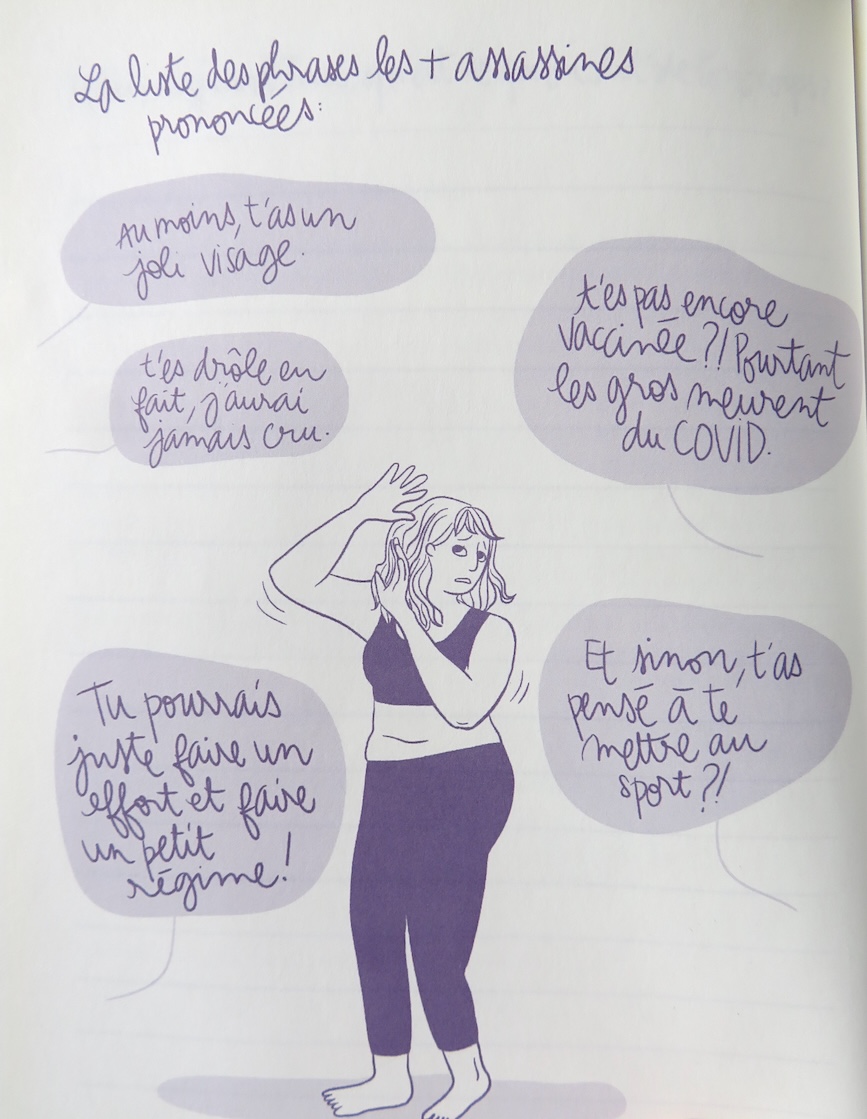 La liste des phrases les + assassines
prononcées:
Au moins, t'as un
joli visage.
t'es pas encore
vaccinée ?! Pourtant
les gros meurent
du COVID.
t'es drôle en
fait, j'aurai
jamais cru.
Et sinon, t'as
pensé à te
mettre au
sport ?!
Tu pourrais
juste faire un
effort et faire
un petit
régime !